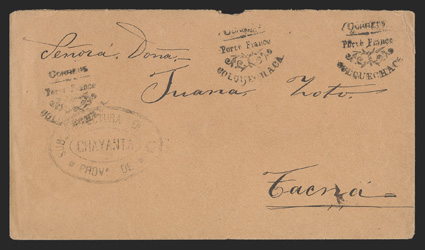 Correos
Porte Franco
COLQUECHACA.
Correos
Porte Franco
COLQUECHACA.
Señora. Doña.
Correos
Porte Franco
COLQUECHACA
Juana Zoto.
CHAYANTA
PROVA DE
Tacna